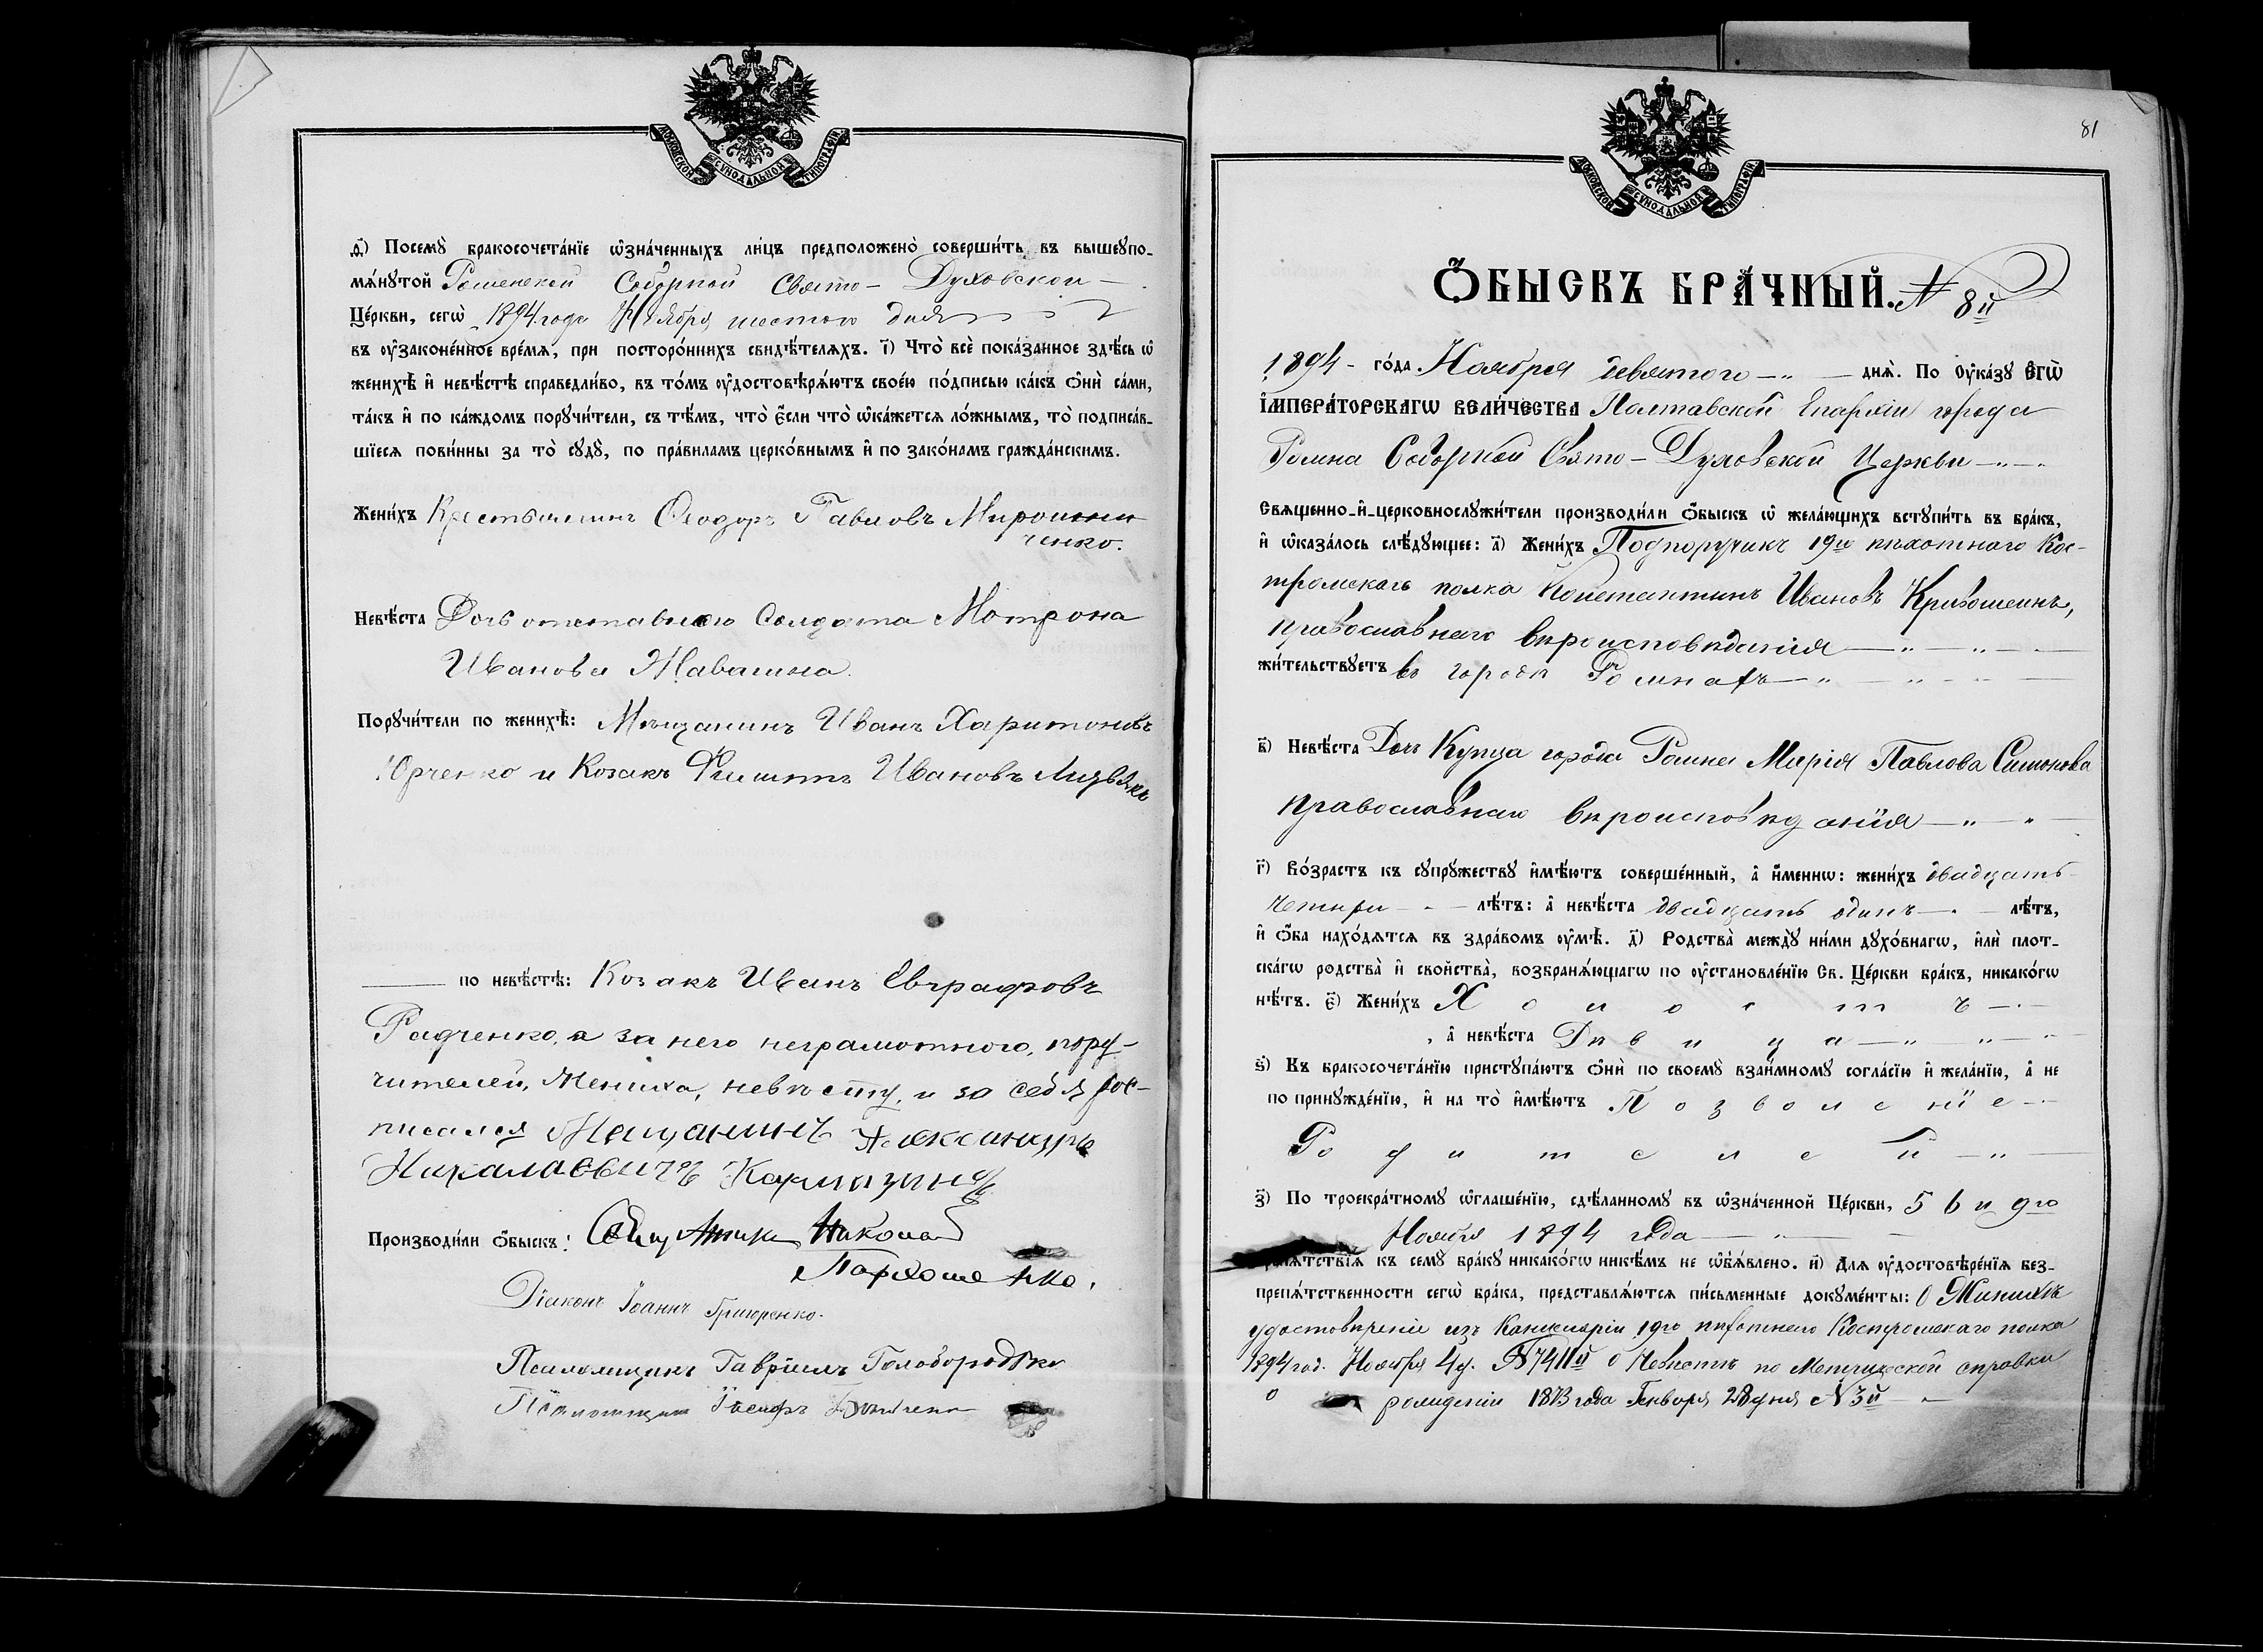 МОСКОВСКОЙ СУНОДАЛЬНОЙ ТИПОГРАФІИ
д҃і) Посемꙋ̀ бракосочета́нїе ѡ҆зна́ченныхъ ли́цъ предположено̀ соверши́ть въ вышеꙋпо-
мѧ́нꙋтой Роменской Соборной Свято-Духовской
Це́ркви, сегѡ̀ 1894 года Ноября шестого дня
въ ᲂу҆законе́нное вре́мѧ, при посторо́ннихъ свидѣ́телѧхъ. і҃) Что̀ всѐ пока́занное здѣ́сь ѡ҆
женихѣ̀ и҆ невѣ́стѣ справедли́во, въ то́мъ ᲂу҆достовѣрѧ́ютъ свое́ю по́дписью ка́къ ѻ҆нѝ са́ми,
та́къ и҆ по ка́ждомъ порꙋчи́тели, съ тѣ́мъ, что̀ є҆́сли что̀ ѡ҆ка́жетсѧ ло́жнымъ, то̀ подписа́в-
шїесѧ пови́нны за то̀ сꙋдꙋ̀, по пра́виламъ церко́внымъ и҆ по зако́намъ гражда́нскимъ.
Жени́хъ Крестьянинъ Ѳеодоръ Павловъ Мирошни
ченко.
Невѣ́ста Дочь отставного Солдата Мотрона
Иванова Жавалина.
Порꙋчи́тели по женихѣ̀: Мѣщанинъ Иванъ Харитоновъ
Юрченко и Козакъ Филиппъ Ивановъ
по невѣ́стѣ: Козакъ Иванъ Евграфовъ
Радченко, а за него неграмотного, пору-
чителей, Жениха, невѣсту, и за себя рос-
писался Мещанинъ Александръ
Николаевичъ Кармазинъ
Производи́ли ѻ҆́быскъ: Николай
Пархоменко.
Діаконъ Іоаннъ Григоренко.
Псаломщикъ Гавріилъ Голобородько
Псаломщикъ Іосифъ
81
МОСКОВСКОЙ СУНОДАЛЬНОЙ ТИПОГРАФІИ
Ѻ҆́БЫСКЪ БРА́ЧНЫЙ. № 8й
1894 - го́да Ноября девятого дня̀. По Оу҆ка́зꙋ Є҆гѡ̀
І҆мпера́торскагѡ вели́чества Полтавской Епархіи города
Ромна Соборной Свято-Духовской Церкви
Свѧщенно-и҆-церковнослꙋжи́тели производи́ли ѻ҆́быскъ ѡ҆ жела́ющихъ встꙋпи́ть въ бра́къ,
и҆ ѡ҆каза́лось слѣ́дꙋющее: а҃) Жени́хъ Подпоручикъ 19го пѣхотнаго Кос-
тромскаго полка Константинъ Ивановъ Кривошеинъ,
православнаго вѣроисповѣданія
жи́тельствꙋетъ въ городѣ Ромнахъ
в҃) Невѣ́ста Дочь Купца города Ромна Марія Павлова Симонова
православнаго вѣроисповѣданія
г҃) Во́зрастъ къ сꙋпрꙋ́жествꙋ и҆мѣ́ютъ соверше́нный, а҆ и҆́меннѡ: жени́хъ двадцать
четыри лѣ́тъ: а҆ невѣ́ста двадцать одинъ лѣ́тъ,
и҆ ѻ҆́ба нахо́дѧтсѧ въ здра́вомъ ᲂу҆мѣ̀. д҃) Родства̀ междꙋ̀ ни́ми дꙋхо́внагѡ, и҆лѝ плот-
ска́гѡ родства̀ и҆ свойства̀, возбранѧ́ющагѡ по ᲂу҆становле́нїю Св. Це́ркви бра́къ, никако́гѡ
нѣ́тъ. є҃) Жени́хъ Холостъ
, а҆ невѣ́ста Дѣвица
ѕ҃) Къ бракосочета́нїю пристꙋпа́ютъ ѻ҆нѝ по своемꙋ̀ взаи́мномꙋ согла́сїю и҆ жела́нїю, а҆ не
по принꙋжде́нїю, и҆ на то̀ и҆мѣ́ютъ Позволеніе
Родителей
з҃) По троекра́тномꙋ ѡ҆глаше́нїю, сдѣ́ланномꙋ въ ѡ҆зна́ченной Це́ркви, 5 6 и 9го
Ноября 1894 года
препѧ́тствїѧ къ семꙋ̀ бра́кꙋ никако́гѡ никѣ́мъ не ѡ҆б̾ѧ́влено. и҃) Длѧ ᲂу҆достовѣре́нїѧ без-
препѧ́тственности сегѡ̀ бра́ка, представлѧ́ютсѧ пи́сьменные докꙋме́нты: О Женихѣ
удостовѣреніе изъ Канцеляріи 19го пѣхотнаго Костромскаго полка
1894 год. Ноября 4 д. № 7411й о Невѣстѣ по Метрической справки
о рожденіи 1873 года Генворя 28 дня № 3й